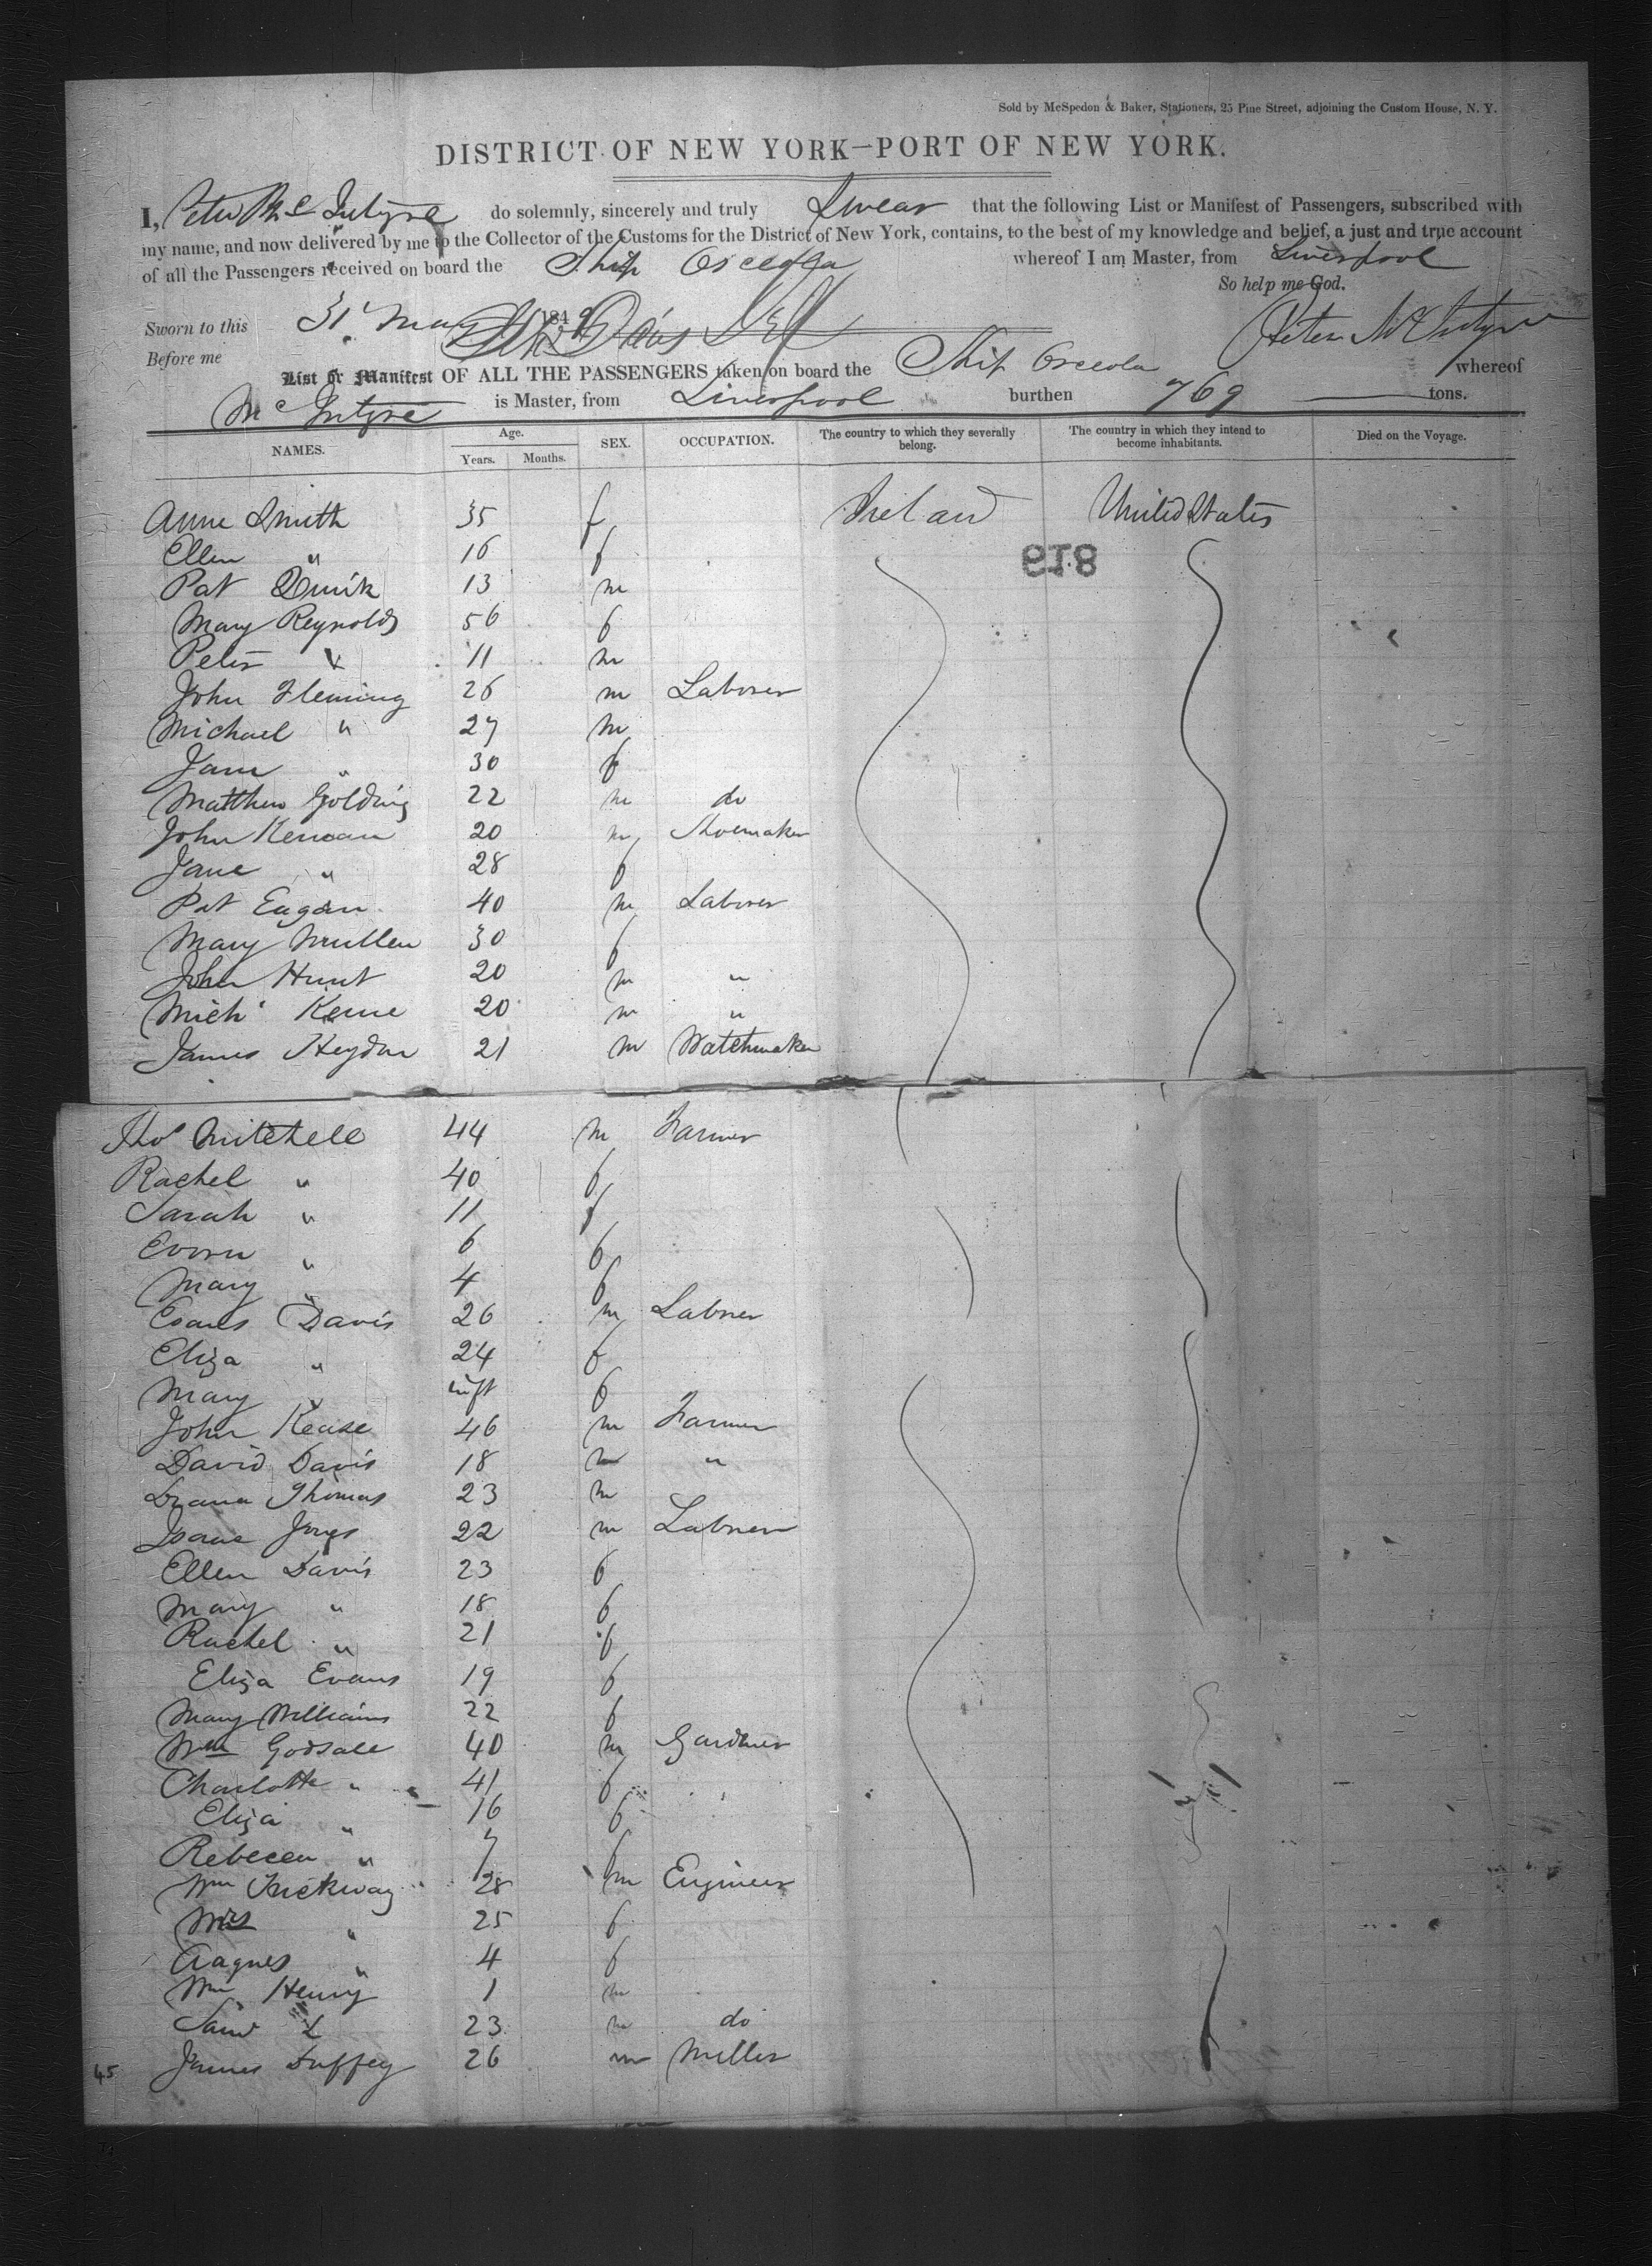 Sold by McSpedon & Baker, Stationers, 25 Pine Street, adjoining the Custom House, N. Y.
DISTRICT OF NEW YORK—PORT OF NEW YORK.
I, Peter McIntyre do solemnly, sincerely and truly Swear that the following List or Manifest of Passengers, subscribed with
my name, and now delivered by me to the Collector of the Customs for the District of New York, contains, to the best of my knowledge and belief, a just and true account
of all the Passengers received on board the Ship Osceola whereof I am Master, from Liverpool
So help me God.
Sworn to this 31 May 1849 Peter McIntyre
Before me
List or Manifest OF ALL THE PASSENGERS taken on board the Ship Osceola whereof
McIntyre is Master, from Liverpool burthen 769 tons.
NAMES. Age. Years. Months. SEX. OCCUPATION. The country to which they severally belong. The country in which they intend to become inhabitants. Died on the Voyage.
Anne Smith 35 f Ireland United States
Ellen " 16 f
819
Pat 13 m
Mary Reynolds 56 f
Peter " 11 m
John Fleming 26 m Laborer
Michael " 27 m
Jane " 30 f
Matthew Golding 22 m do
John Kenoan 20 m Shoemaker
Jane " 28 f
Pat Eagan 40 m Laborer
Mary Mullen 30 f
John Hunt 20 m "
Mich Kene 20 m "
James Heydon 21 m Watchmaker
Tho Mitchell 44 m Farmer
Rachel " 40 f
Sarah " 11 f
" 6 f
Mary " 4 f
Evans Davis 26 m Laborer
Eliza " 24 f
Mary " inft f
John Kease 46 m Farmer
David Davis 18 m "
Thomas 23 m
Isaac Jones 22 m Laborer
Ellen Davis 23 f
Mary " 18 f
Rachel " 21 f
Eliza Evans 19 f
Mary Williams 22 f
Wm Godsall 40 m Gardner
Charlotte " 41 f
Eliza " 16 f
Rebecca " 7 f
Wm Trickway 28 m Engineer
Mrs " 25 f
Aagnes " 4 f
Wm Henry 1 m
Saml 23 m do
45 James Duffey 26 m Miller